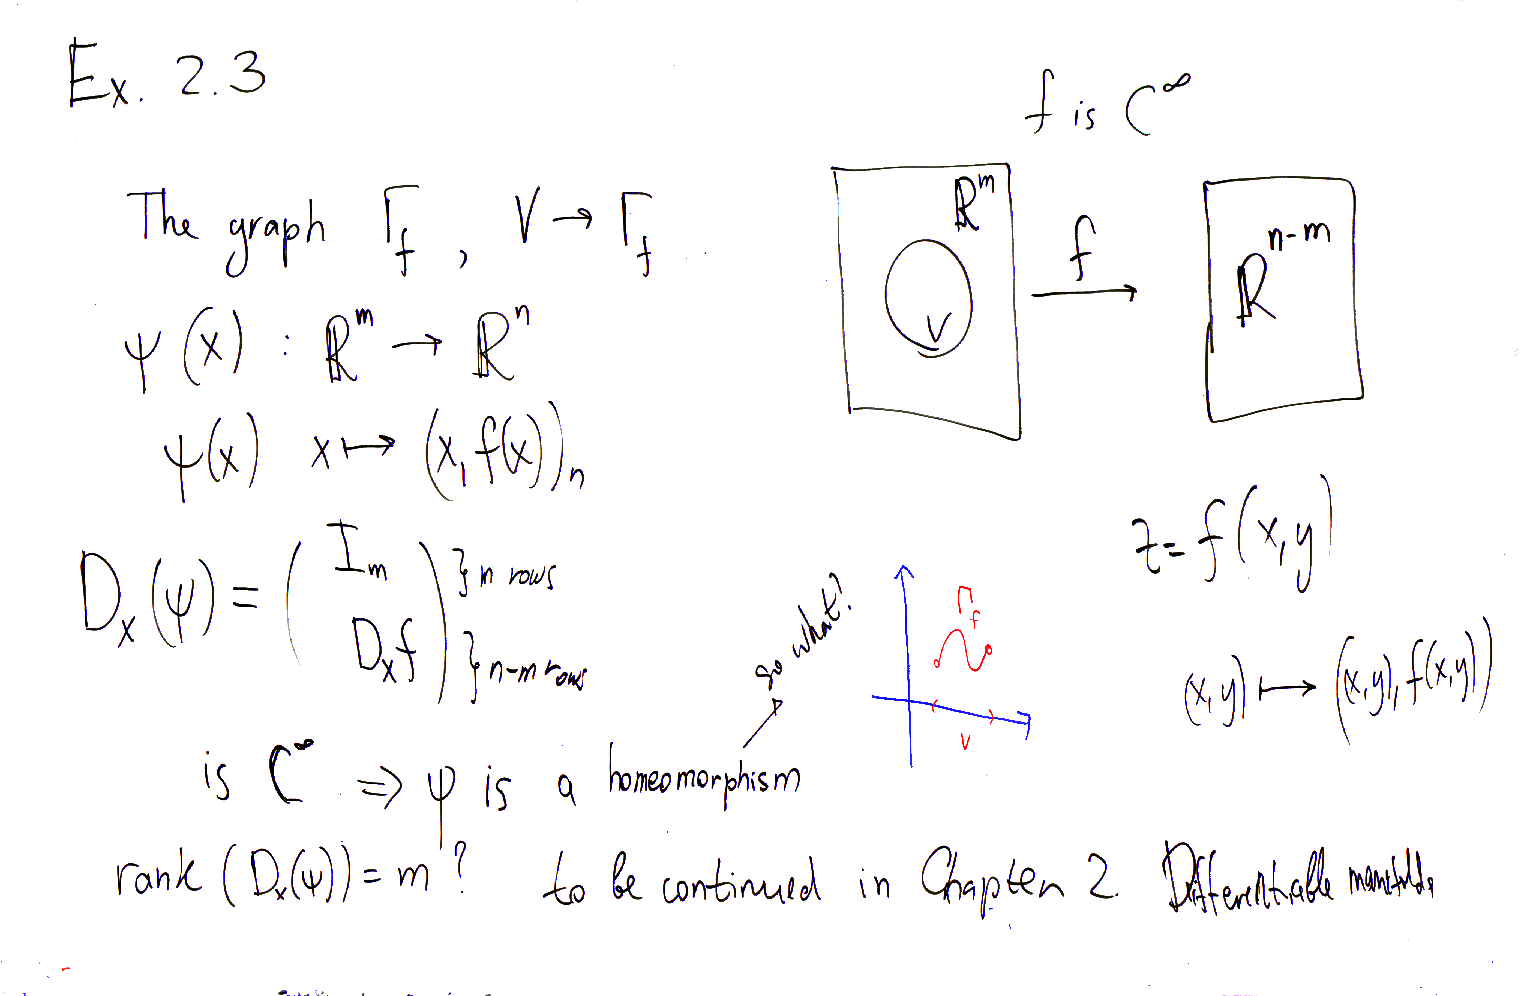 Ex. 2.3
f is C^∞
The graph Γ_f , V → Γ_f
ℝ^m
V
f
ℝ^{n-m}
ψ(x) : ℝ^m → ℝ^n
ψ(x) x ↦ (x, f(x))_n
z = f(x,y)
D_x(ψ) = ( I_m D_x f ) } m rows } n-m rows
so what?
Γ_f
V
(x,y) ↦ ((x,y), f(x,y))
is C^∞ ⇒ ψ is a homeomorphism
rank (D_x(ψ)) = m ? to be continued in Chapter 2. Differentiable manifolds